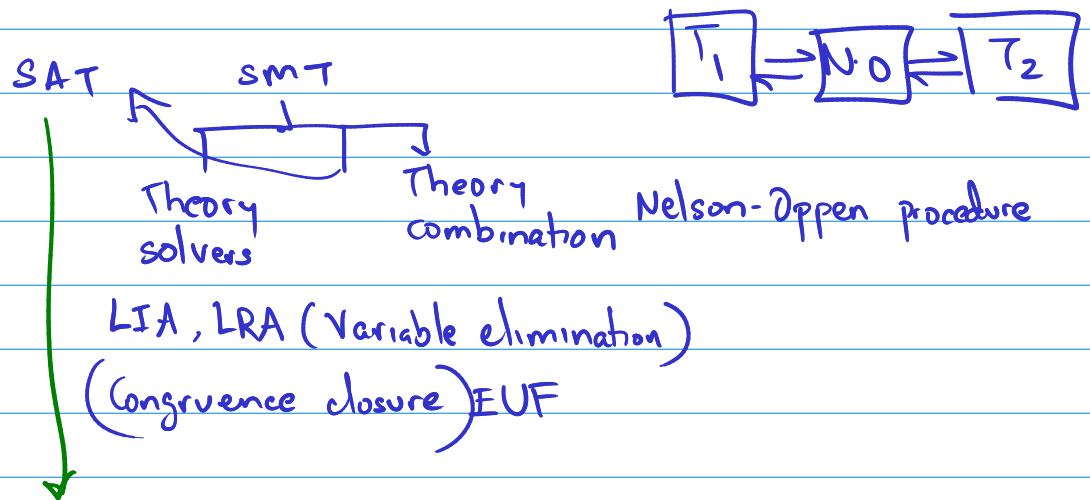 T1 N.O T2
SAT SMT
Theory solvers
Theory combination
Nelson-Oppen procedure
LIA, LRA (Variable elimination)
(Congruence closure) EUF